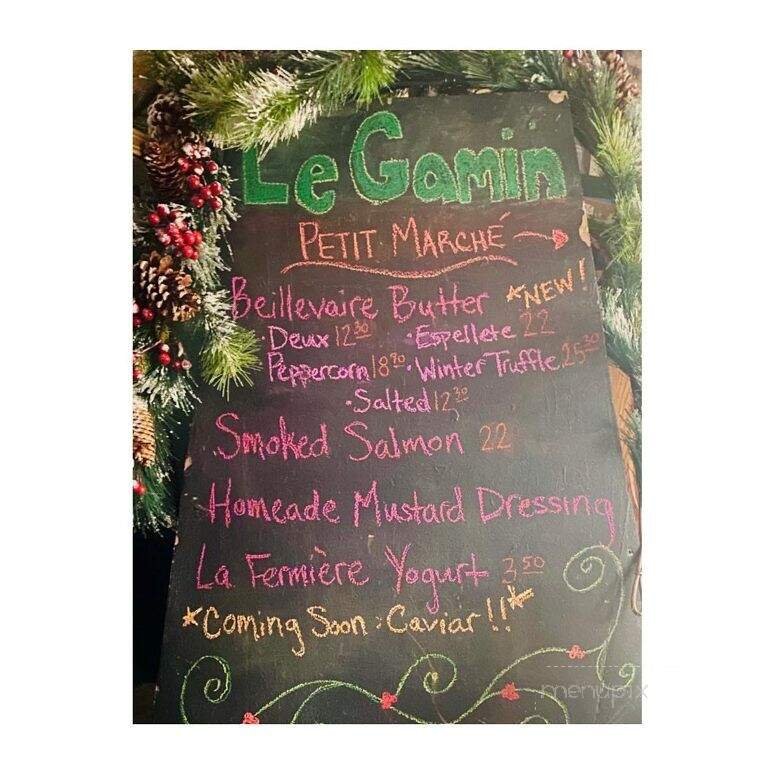 Le Gamin
PETIT MARCHÉ
Beillevaire Butter *NEW!
·Deux 12.30 ·Espellete 22
Peppercorn 18.90 ·Winter Truffle 25.30
·Salted 12.30
Smoked Salmon 22
Homeade Mustard Dressing
La Fermière Yogurt 3.50
*Coming Soon: Caviar!!*
menupix